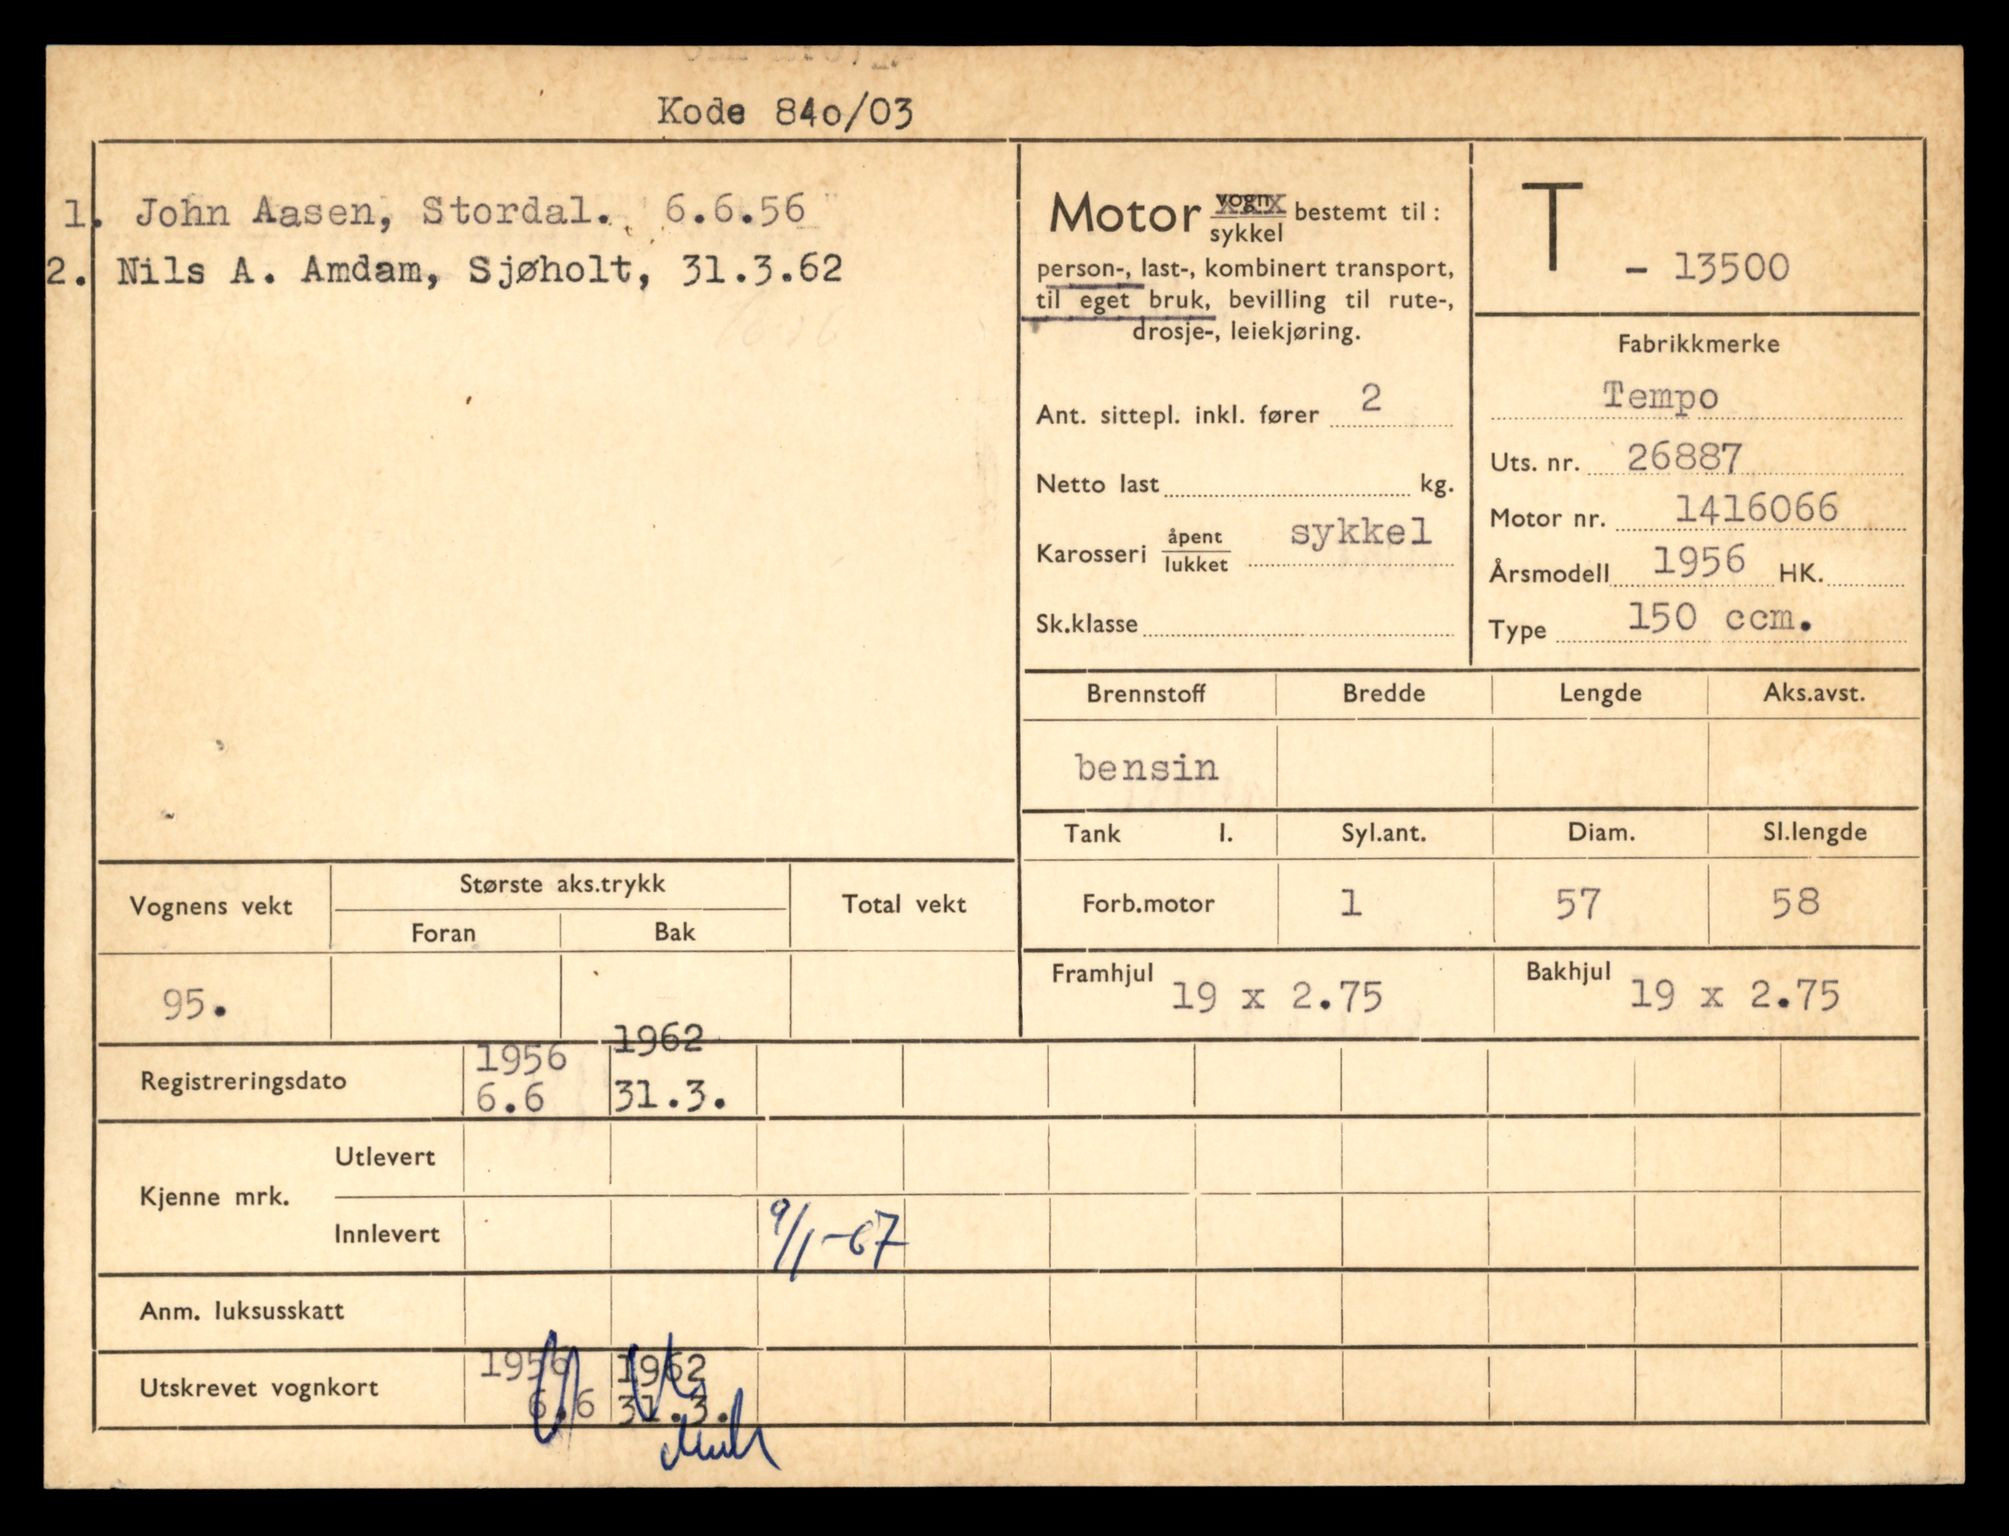 Kode 84o/03
1. John Aasen, Stordal. 6.6.56
2. Nils A. Amdam, Sjøholt, 31.3.62
Motor vogn/sykkel bestemt til:
person-, last-, kombinert transport,
til eget bruk, bevilling til rute-,
drosje-, leiekjøring.
Ant. sittepl. inkl. fører 2
Netto last kg.
Karosseri åpent/lukket sykkel
Sk.klasse
T - 13500
Fabrikkmerke
Tempo
Uts. nr. 26887
Motor nr. 1416066
Årsmodell 1956 HK.
Type 150 ccm.
Brennstoff Bredde Lengde Aks.avst.
bensin
Tank l. Syl.ant. Diam. Sl.lengde
Forb.motor 1 57 58
Framhjul 19 x 2.75 Bakhjul 19 x 2.75
Vognens vekt Største aks.trykk Total vekt
Foran Bak
95.
Registreringsdato 1956 1962
6.6 31.3.
Kjenne mrk. Utlevert
Innlevert 9/1-67
Anm. luksusskatt
Utskrevet vognkort 1956 1962
6.6 31.3.